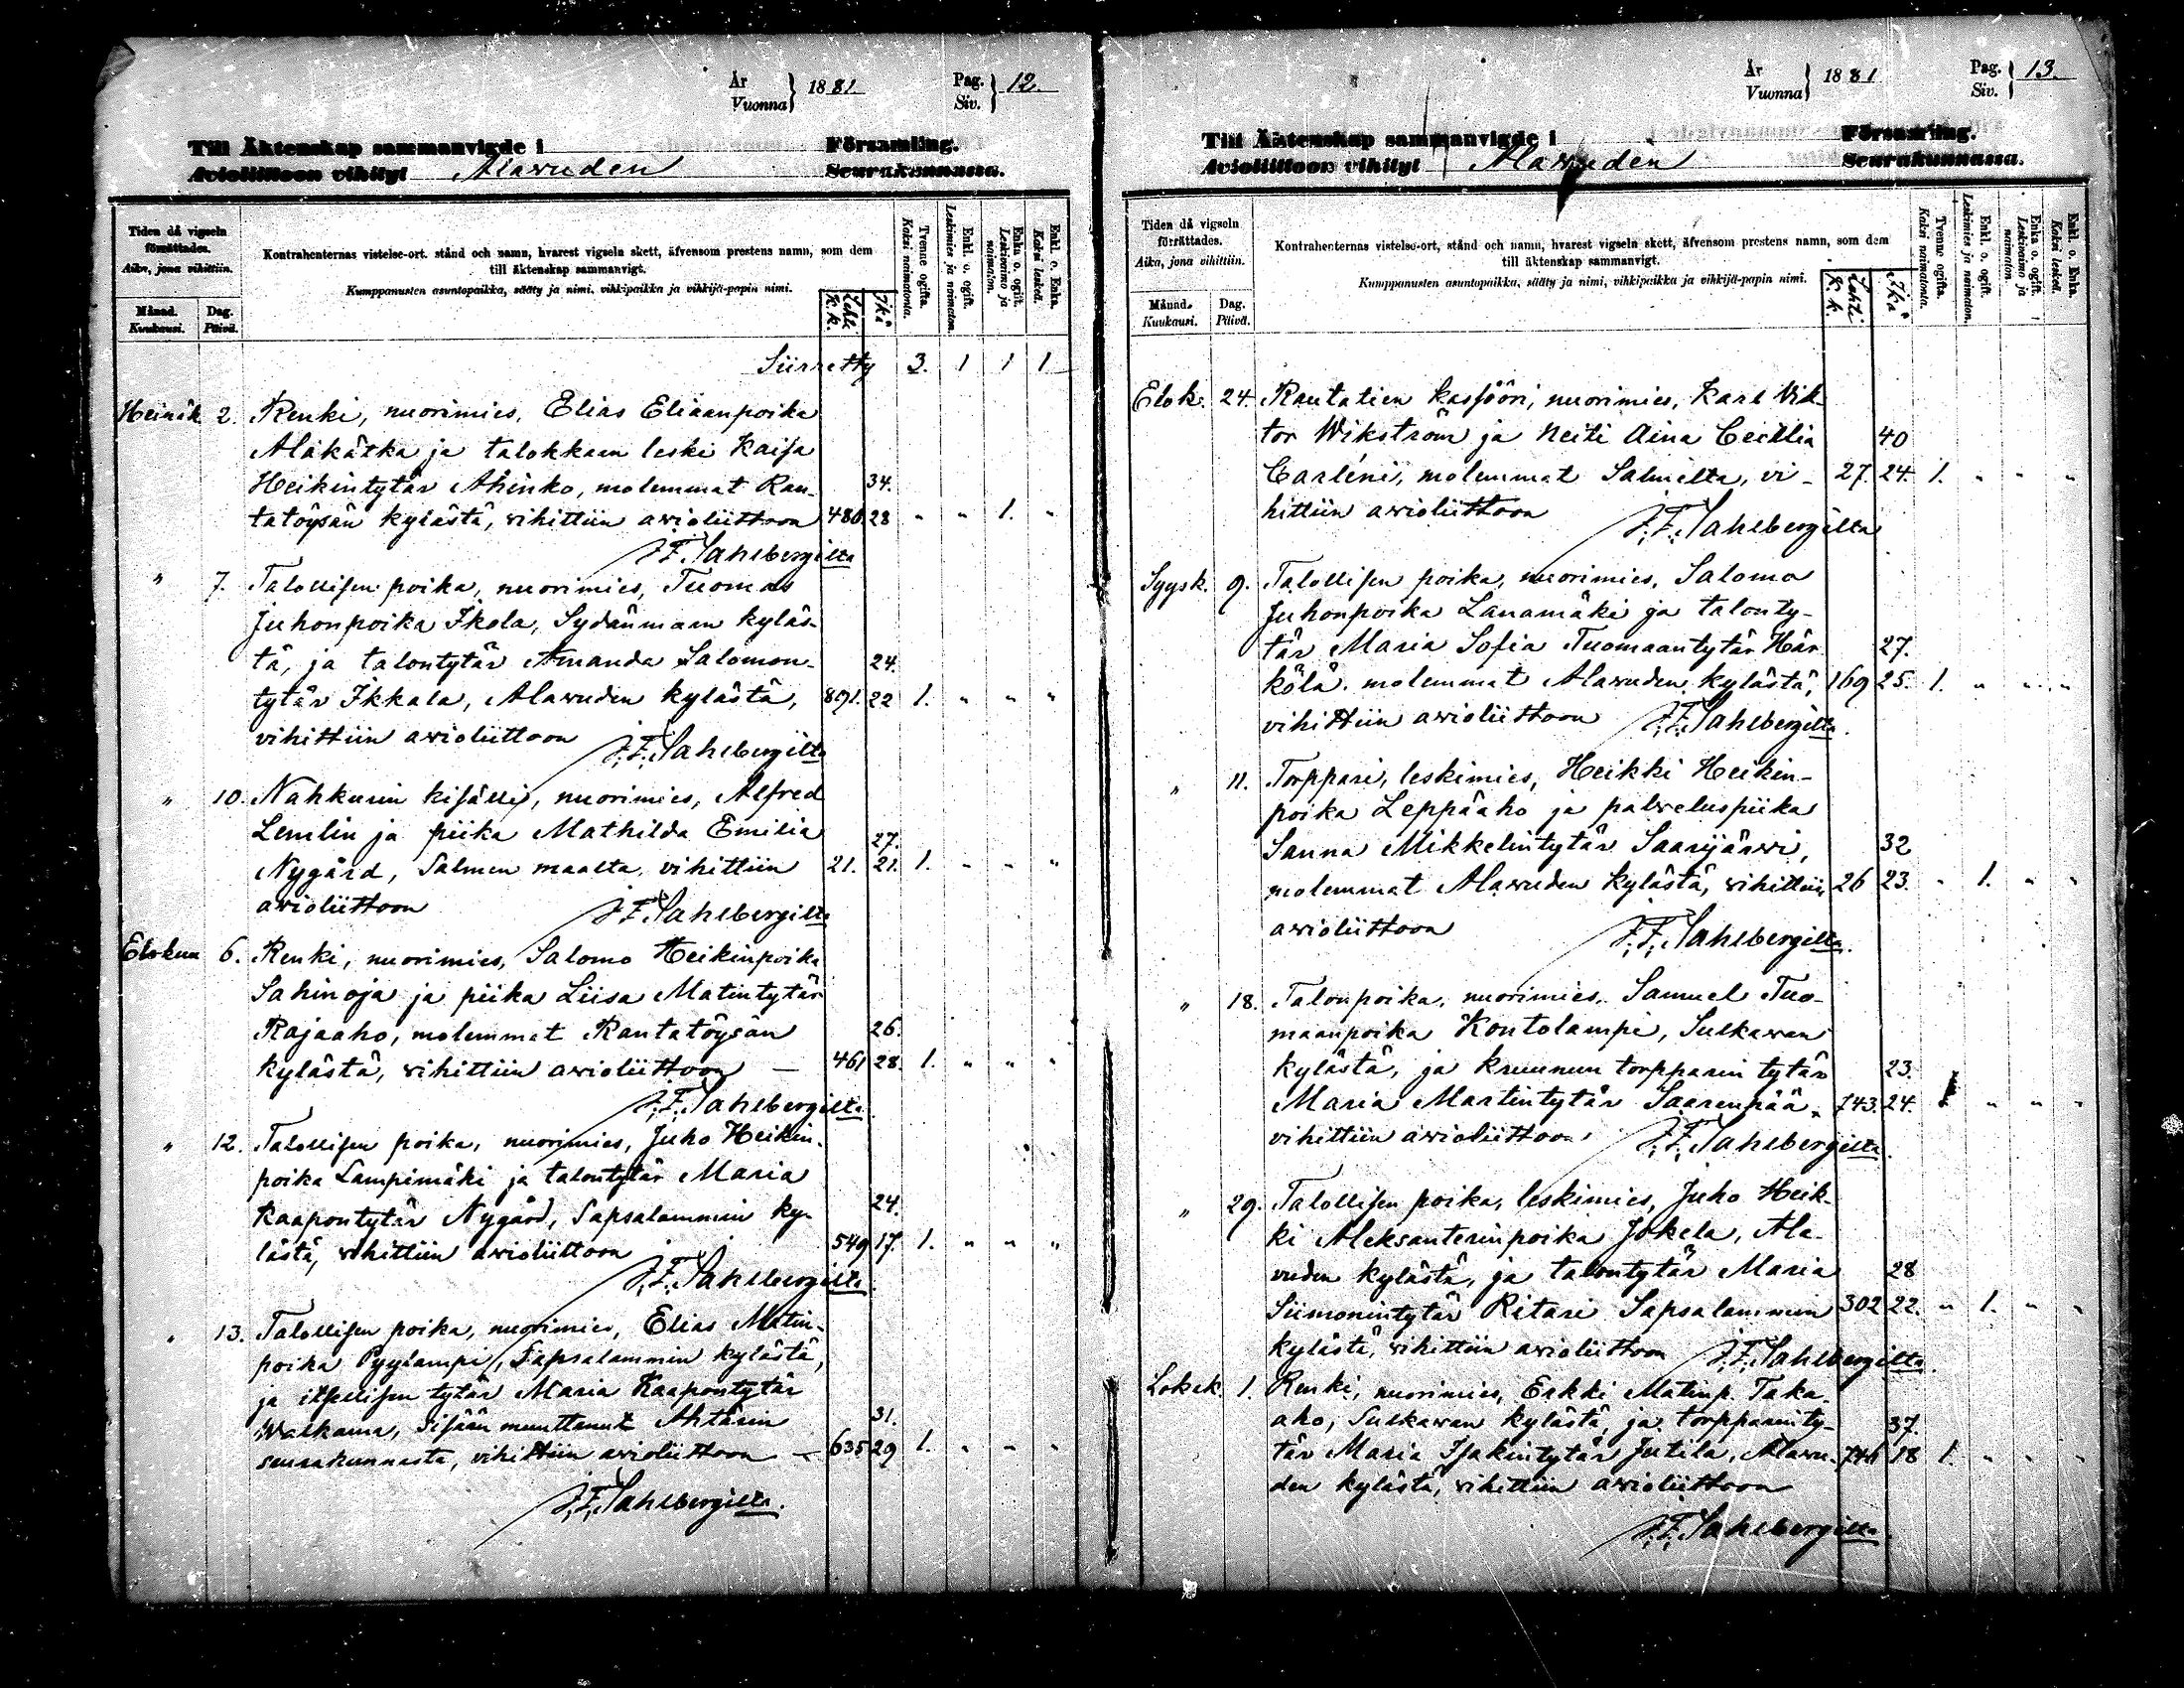 År
Vuonna } 1881
Pag.
Siv. } 12.
Till Äktenskap sammanvigde i Församling.
Avioliittoon vihityt Alawuden Seurakunnassa.
Tiden då vigseln förrättades.
Aika, jona vihittiin.
Månad. Kuukausi.
Dag. Päivä.
Kontrahenternas vistelse-ort, stånd och namn, hvarest vigseln skett, äfvensom prestens namn, som dem
till äktenskap sammanvigt.
Kumppanusten asuntopaikka, sääty ja nimi, vihkipaikka ja vihkijä-papin nimi.
Lehti K. k.
Ikä
Tvenne ogifta. Kaksi naimatonta.
Enkl. o. ogift. Leskimies ja naimaton.
Enka o. ogift. Leskivaimo ja naimaton.
Enkl. o. Enka. Kaksi leskeä.
Siirretty 3. 1 1 1
Heinäk 2. Renki, nuorimies, Elias Eliaanpoika
Alakätka ja talokkaan leski Kaisa
Heikintytär Ahinko, molemmat Ran- 34.
tatöysän kylästä, vihittiin avioliittoon 480. 28 " " 1. "
J. F. Sahlbergilta
" 7. Talollisen poika, nuorimies, Tuomas
Juhonpoika Ikola, Sydänmaan kyläs-
tä, ja talontytär Amanda Salomon- 24.
tytär Ikkala, Alawuden kylästä, 891. 22 1. " " "
vihittiin avioliittoon J. F. Sahlbergilta
" 10. Nahkurin kisälli, nuorimies, Alfred
Lemlin ja piika Mathilda Emilia 27.
Nygård, Salmen maalta, vihittiin 21. 21. 1. " " "
avioliittoon J. F. Sahlbergilta
Elokuu 6. Renki, nuorimies, Salomo Heikinpoika
Sahinoja ja piika Liisa Matintytär
Rajaaho, molemmat Rantatöysän 26.
kylästä, vihittiin avioliittoon — 461 28. 1. " " "
J. F. Sahlbergilta
" 12. Talollisen poika, nuorimies, Juho Heikin-
poika Lampimäki ja talontytär Maria
Kaapontytär Nygård, Sapsalammin ky- 24.
lästä, vihittiin avioliittoon 549 17. 1. " " "
J. F. Sahlbergilta
" 13. Talollisen poika, nuorimies, Elias Matin-
poika Pyylampi, Sapsalammin kylästä,
ja itsellisen tytär Maria Kaapontytär
Walkama, sisään muuttanut Ahtärin 31.
seurakunnasta, vihittiin avioliittoon — 635 29 1. " " "
J. F. Sahlbergilta.
År
Vuonna } 1881
Pag.
Siv. } 13.
Till Äktenskap sammanvigde i Församling.
Avioliittoon vihityt Alawuden Seurakunnassa.
Tiden då vigseln förrättades.
Aika, jona vihittiin.
Månad. Kuukausi.
Dag. Päivä.
Kontrahenternas vistelse-ort, stånd och namn, hvarest vigseln skett, äfvensom prestens namn, som dem
till äktenskap sammanvigt.
Kumppanusten asuntopaikka, sääty ja nimi, vihkipaikka ja vihkijä-papin nimi.
Lehti K. k.
Ikä
Tvenne ogifta. Kaksi naimatonta.
Enkl. o. ogift. Leskimies ja naimaton.
Enka o. ogift. Leskivaimo ja naimaton.
Enkl. o. Enka. Kaksi leskeä.
Elok. 24. Rautatien kassööri, nuorimies, Karl Vik-
tor Wikström ja Neiti Aina Cecilia 40
Carléni, molemmat Salmelta, vi- 27. 24. 1. " " "
hittiin avioliittoon J. F. Sahlbergilta
Syysk. 9. Talollisen poika, nuorimies, Salomo
Juhonpoika Lanamäki ja talonty-
tär Maria Sofia Tuomaantytär Här 27.
kölä, molemmat Alawuden kylästä, 169 25. 1. " " "
vihittiin avioliittoon J. F. Sahlbergilta.
" 11. Torppari, leskimies, Heikki Heikin-
poika Leppäaho ja palveluspiika
Sanna Mikkelintytär Saarijärwi, 32
molemmat Alawuden kylästä, vihittiin 26 23. " 1. " "
avioliittoon J. F. Sahlbergilta.
" 18. Talonpoika, nuorimies, Samuel Tuo-
maanpoika Kontolampi, Sulkawan
kylästä, ja kruunun torpparin tytär 23.
Maria Martintytär Saarenpää, 743. 24. 1 " " "
vihittiin avioliittoon J. F. Sahlbergilta.
" 29. Talollisen poika, leskimies, Juho Heik-
ki Aleksanterinpoika Jokela, Ala-
vuden kylästä, ja talontytär Maria 28
Siimonintytär Ritari Sapsalammin 302 22. " 1. " "
kylästä, vihittiin avioliittoon J. F. Sahlbergilta.
Lokak. 1. Renki, nuorimies, Erkki Matinp. Taka-
aho, Sulkawan kylästä, ja torpparinty- 37.
tär Maria Isakintytär Jutila, Alawu- 746 18 1. " " "
den kylästä, vihittiin avioliittoon
J. F. Sahlbergilta.